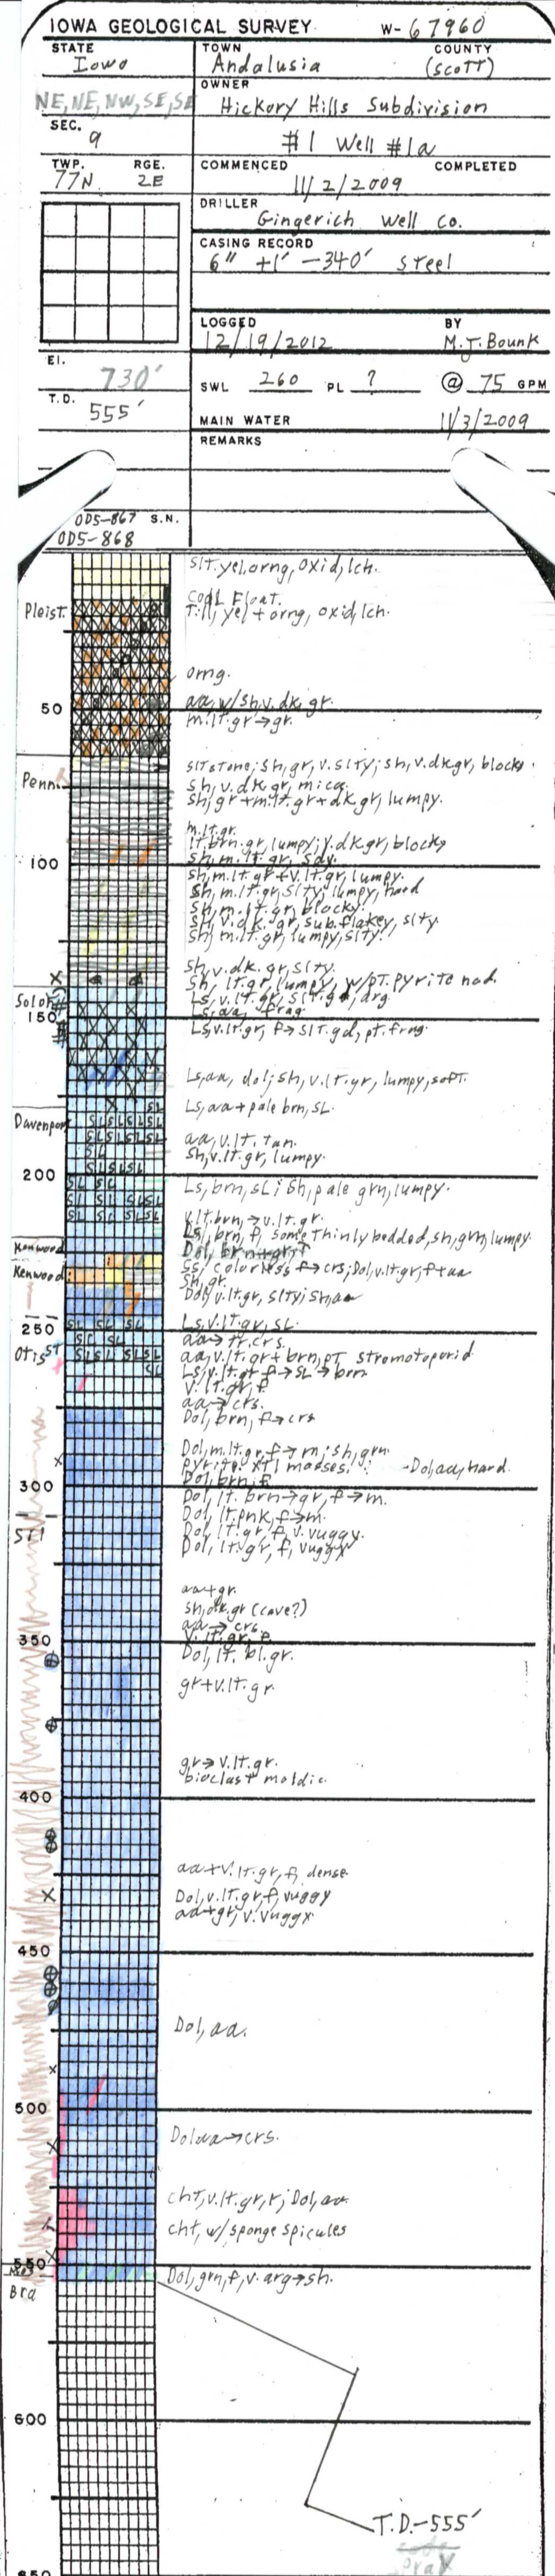 IOWA GEOLOGICAL SURVEY W-67960
STATE TOWN COUNTY
Iowa Andalusia (SCOTT)
OWNER
NE, NE, NW, SE, SE Hickory Hills Subdivision
SEC.
9 #1 Well #1a
TWP. RGE. COMMENCED COMPLETED
77N 2E 11/2/2009
DRILLER
Gingerich Well Co.
CASING RECORD
6" +1' -340' Steel
LOGGED BY
12/19/2012 M.J. Bounk
El.
730' SWL 260 PL ? @ 75 GPM
T.D.
555' MAIN WATER 11/3/2009
REMARKS
OD5-867 S.N.
OD5-868
Slt. yel, orng, oxid, lch.
Coal Float.
Pleist. Till, yel + orng, oxid, lch.
orng.
aa, w/sh, v.dk.gr.
50 m.lt.gr→gr.
siltstone; sh, gr, v.slty; sh, v.dkgr, blocky.
Penn. Sh, v.dk.gr, mica
Sh, gr + m.lt.gr + dk.gr, lumpy.
m.lt.gr.
lt.brn.gr, lumpy; v.dk.gr, blocky
100 sh, m.lt.gr, sdy.
sh, m.lt.gr + v.lt.gr, lumpy.
Sh, m.lt.gr, slty, lumpy, hard
Sh, m.lt.gr, blocky.
Sh, v.dk.gr, sub.flakey, slty
Sh, m.lt.gr, lumpy, slty.
Sh, v.dk.gr, slty.
Sh, lt.gr, lumpy, w/pt. pyrite nod.
Solon Ls, v.lt.gr, arg
150 Ls, aa, frag.
Ls, v.lt.gr, f→slt.gd, pt.frag.
Ls, aa, dol; sh, v.lt.gr, lumpy, soft.
Ls, aa + pale brn, SL.
Davenport
aa, v.lt. tan.
Sh, v.lt.gr, lumpy.
200
Ls, brn, SL; Sh, pale grn, lumpy.
v.lt.brn→v.lt.gr.
Ls, brn, f, some thinly bedded, sh, grn, lumpy
Kenwood Dol, brn+gr, f
Ss, colorless f→crs; Dol, v.lt.gr, f+aa
Kenwood Sh, gr.
Dol, v.lt.gr, slty; sh, aa
250 Ls, v.lt.gr, SL.
aa→tr.crs.
Otis aa, v.lt.gr + brn, pt stromatoporid
Ls, v.lt.gr f→SL→brn
v.lt.gr, f
aa→crs.
Dol, brn, f→crs
Dol, m.lt.gr, f→m; sh, grn
pyrite xtl masses. -Dol, aa, hard.
Dol, brn, f
300 Dol, lt. brn→gr, f→m.
Dol, lt.pnk, f→m.
Sil Dol, lt.gr, f, v.vuggy.
Dol, lt.gr, f, vuggy
aa+gr.
Sh, dk.gr (cave?)
aa→crs.
350 v.lt.gr, f.
Dol, lt. bl.gr.
gr+v.lt.gr.
gr→v.lt.gr.
bioclast moldic.
400
aa+v.lt.gr, f, dense
Dol, v.lt.gr, f, vuggy
aa+gr, v.vuggy
450
Dol, aa.
500
Dol aa→crs.
cht, v.lt.gr, r; Dol, aa
cht, w/ sponge spicules
550
Dol, grn, f, v.arg→sh.
Bra
600
T.D.-555'
650